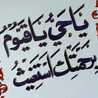 ياحي ياقيوم
برحمتك استغيث